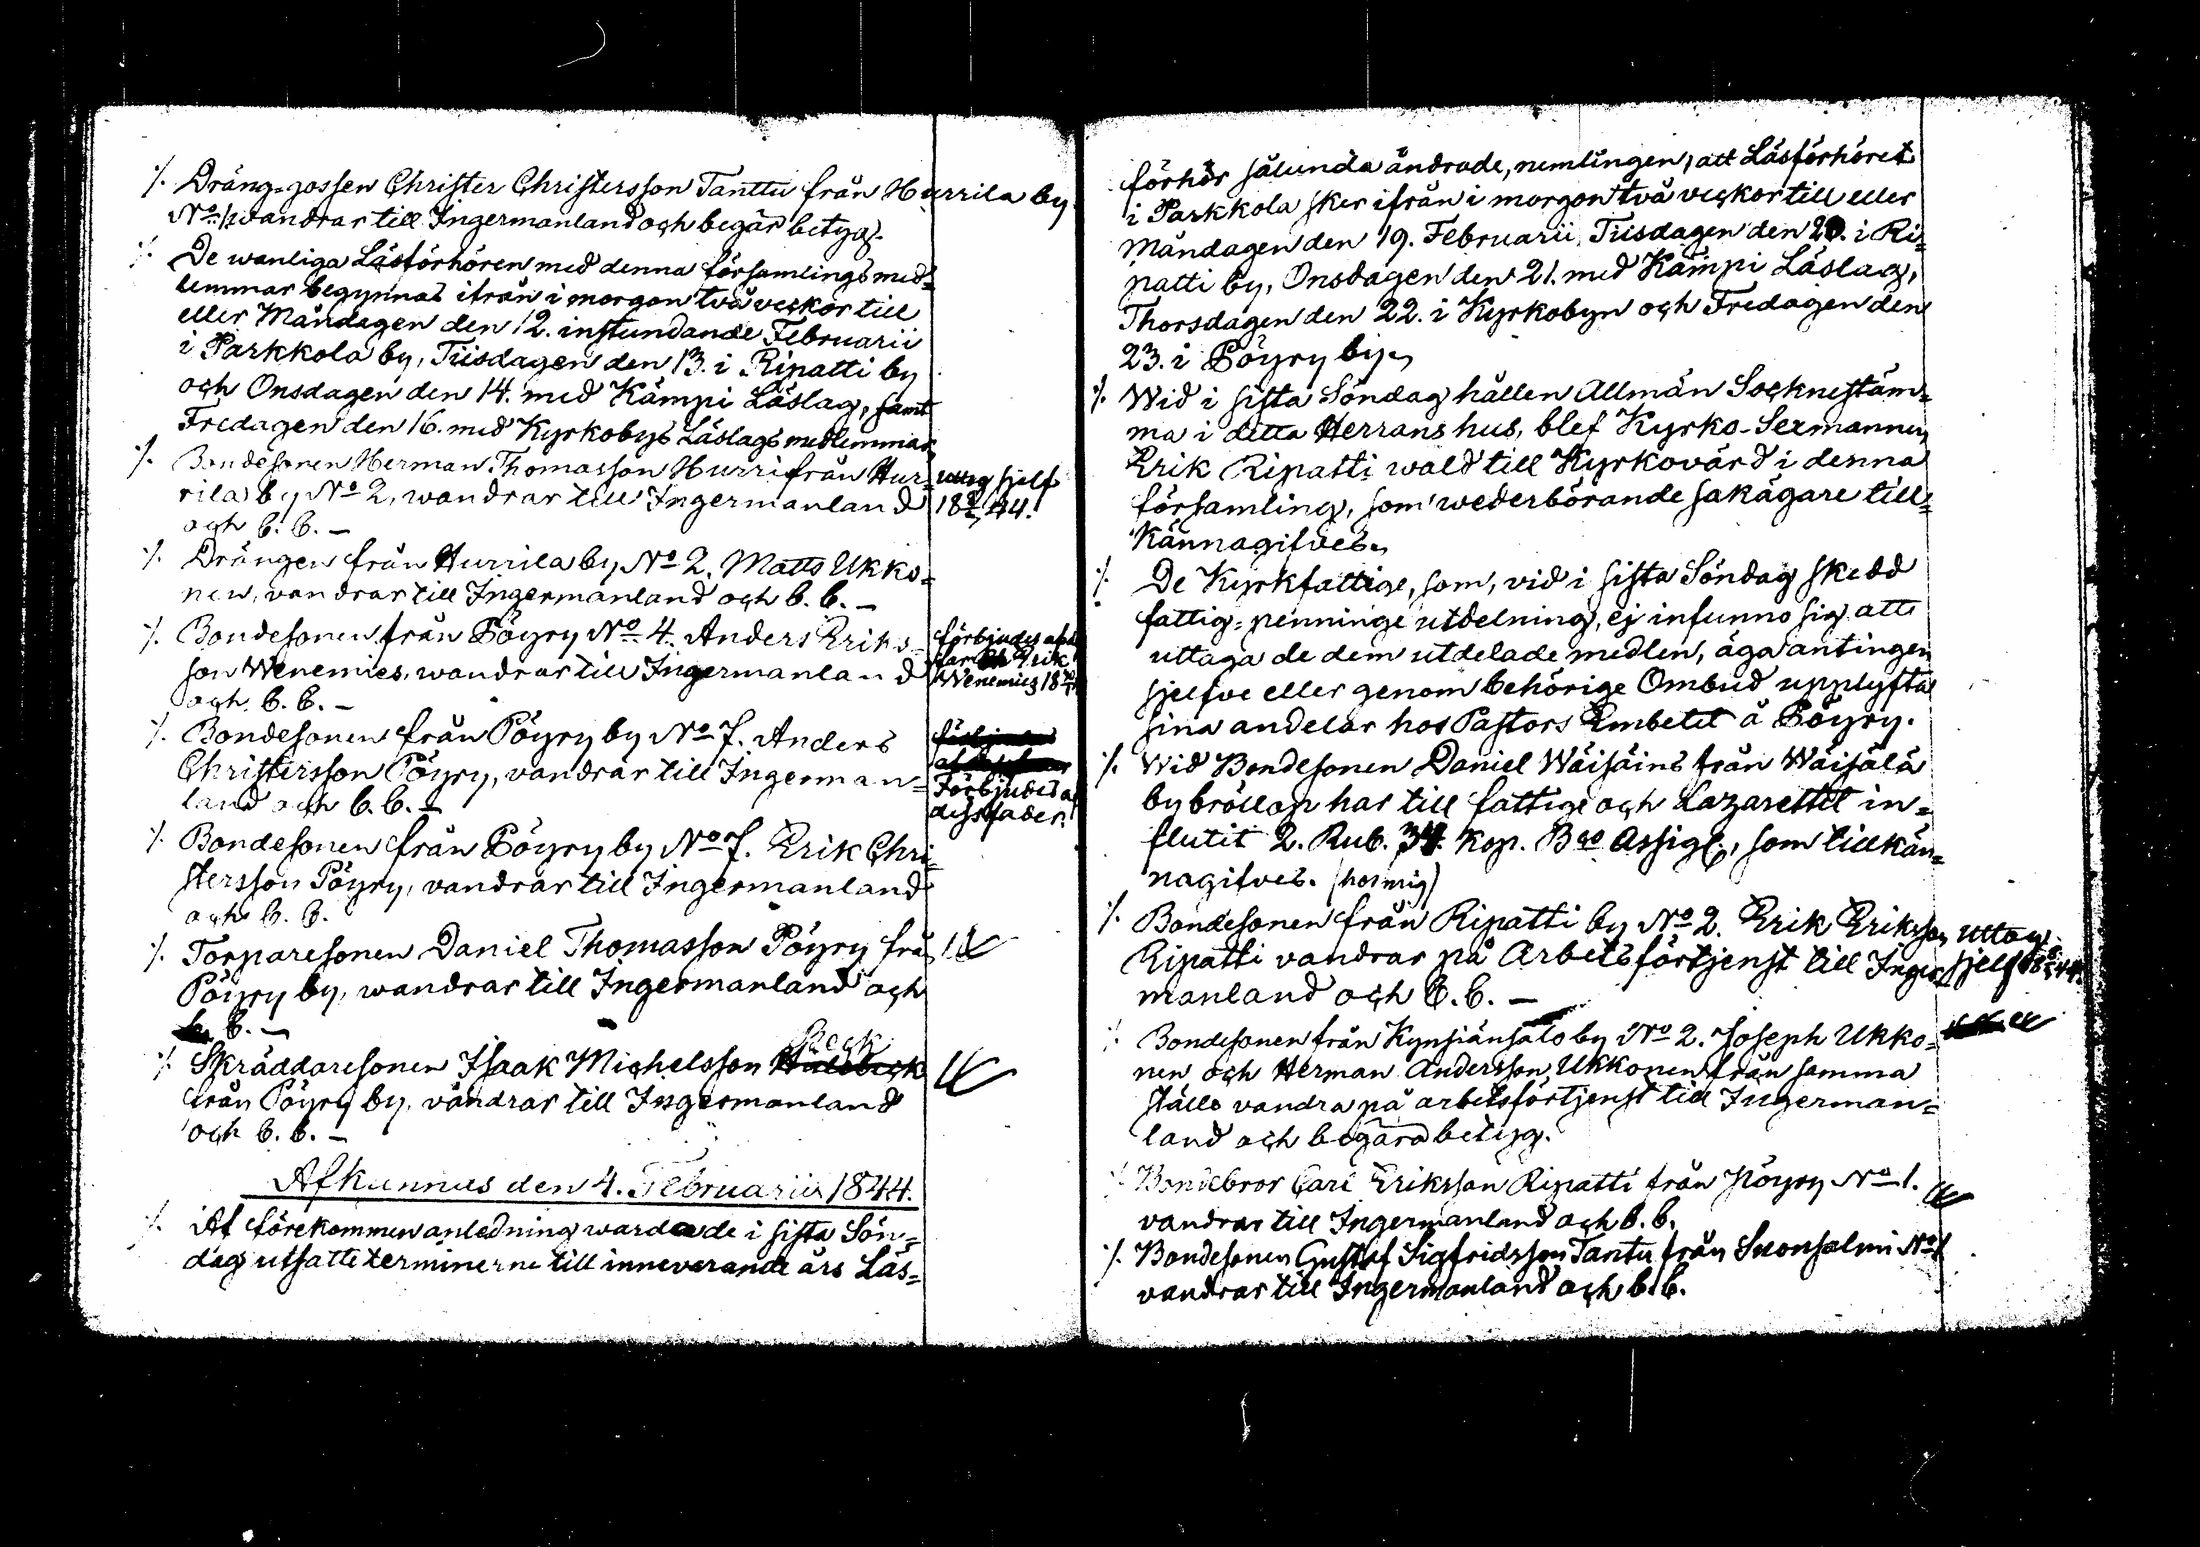 ⁒ Dräng-gossen Christer Christersson Tanttu från Hurrila by
No 1. wandrar till Ingermanland och begär betyg.
⁒ De wanliga Läsförhören med denna församlings med=
lemmar begynnas ifrån i morgon två veckor till
eller Måndagen den 12. instundande Februarii
i Parkkola by, Tiisdagen den 13. i Ripatti by
och Onsdagen den 14. med Kämpi Läslag, samt
Fredagen den 16. med Kyrkobys Läslags medlemmar
⁒ Bondesonen Herman Thomasson Hurri från Hur=
rila by No 2, wandrar till Ingermanland
och b. b. —
uttog sjelf
44.
⁒ Drängen från Hurrila by No 2. Matts Ukko=
nen, vandrar till Ingermanland och b. b. —
⁒ Bondesonen från Pöyry No 4. Anders Eriks=
son Wenemies, wandrar till Ingermanland
och b. b. —
förbjudes af
far Erik
Wenemies
⁒ Bondesonen från Pöyry by No 7. Anders
Christersson Pöyry, vandrar till Ingerman=
land och b. b. —
Förbjudes af
dess fader.
⁒ Bondesonen från Pöyry by No 7. Erik Chri=
stersson Pöyry, vandrar till Ingermanland
och b. b.
⁒ Torparesonen Daniel Thomasson Pöyry från
Pöyry by, wandrar till Ingermanland och
b. —
⁒ Skräddaresonen Isaak Michelsson Beck
från Pöyry by, vandrar till Ingermanland
och b. b. —
Afkunnus den 4. Februarii 1844.
⁒ Af förekommen anledning warda de i sista Sön=
dag utsatte terminerne till innevarande års Läs=
förhör sålunda ändrade, nemlingen, att Läsförhöret
i Parkkola sker ifrån i morgon två veckor till eller
Måndagen den 19. Februarii, Tiisdagen den 20. i Ri=
patti by, Onsdagen den 21. med Kämpi Läslag,
Thorsdagen den 22. i Kyrkobyn och Fredagen den
23. i Pöyry by.
⁒ Wid i sista Söndag hållen Allmän Socknestäm=
ma i detta Herrans hus, blef Kyrko-Sexmannen
Erik Ripatti wald till Kyrkovärd i denna
församling, som wederbörande sakägare till=
kännagifves.
⁒ De Kyrkfattige, som, vid i sista Söndag skedd
fattig=penninge utdelning, ej infunno sig att
uttaga de dem utdelade medlen, äga antingen
sjelfve eller genom behörige Ombud upplyfta
sina andelar hos Pastors Embetet å Pöyry.
⁒ Wid Bondesonen Daniel Wäisäins från Wäisälä
by bröllop har till fattige och Lazarettet in=
flutit 2. Rub. 34. kop. Bco Assign., som tillkän=
nagifves. (hos mig)
⁒ Bondesonen från Ripatti by No 2. Erik Eriksson
Ripatti vandrar på Arbetsförtjenst till Inger=
manland och b. b. —
uttog
sjelf
⁒ Bondesonen från Kynsiänsalo by No 2. Joseph Ukko=
nen och Herman Andersson Ukkonen från samma
ställe vandra på arbetsförtjenst till Ingerman=
land och begära betyg.
⁒ Bondebror Carl Eriksson Ripatti från Pöyry No 1.
vandrar till Ingermanland och b. b.
⁒ Bondesonen Gustaf Sigfridsson Tantu från Suonsalmi No 1
vandrar till Ingermanland och b. b.